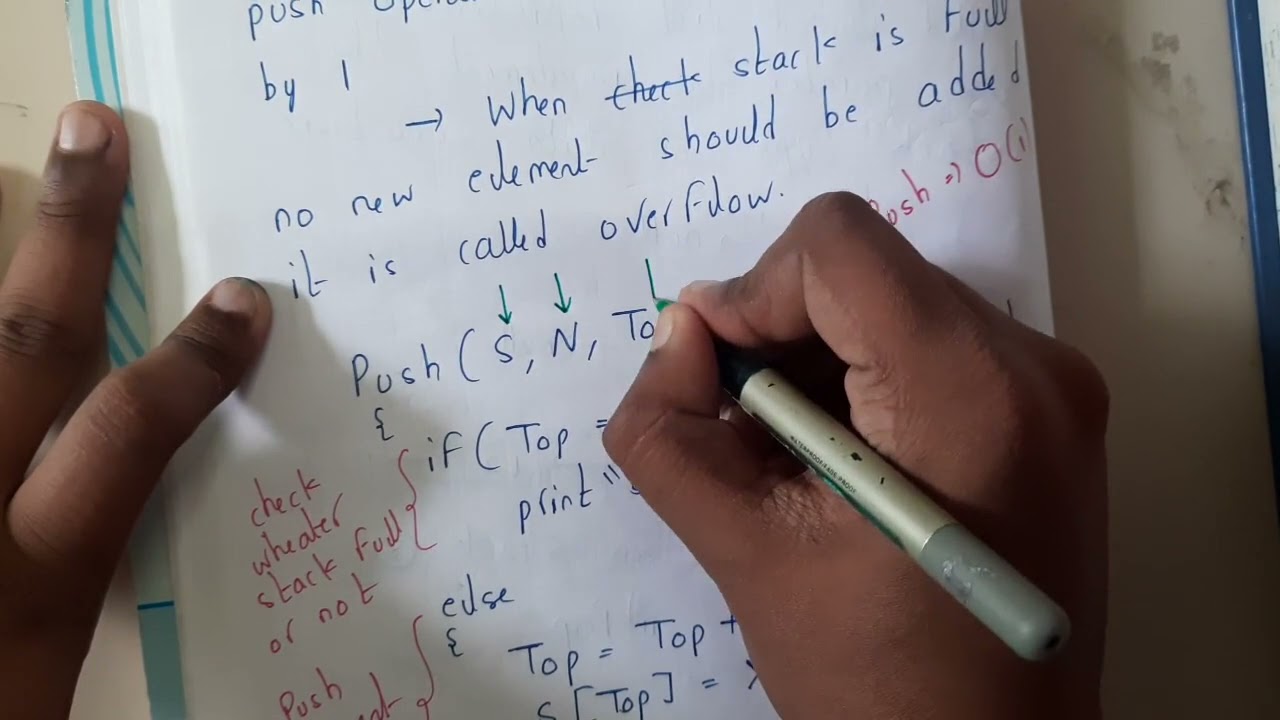 push
by 1
→ When check stack is full
no new element should be added
it is called overflow.
Push => O(1)
Push ( S, N, To
{
if ( Top =
print "s
check
wheater
stack full
or not
else
{
Top = Top +
S [Top] = X
Push